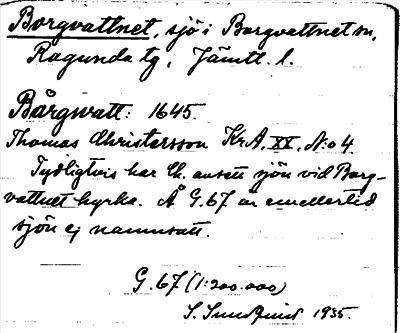 Borgvattnet, sjö i Borgvattnet sn,
Ragunda tg, Jämtl. l.
Bårgwatt: 1645.
Thomas Christersson KrA, XX, N:o 4
Tydligtvis har Ch. ansett sjön vid Borg-
vattnet kyrka. Å G.67 är emellertid
sjön ej namnsatt.
G.67 (1:200.000)
S. Sundquist 1935.